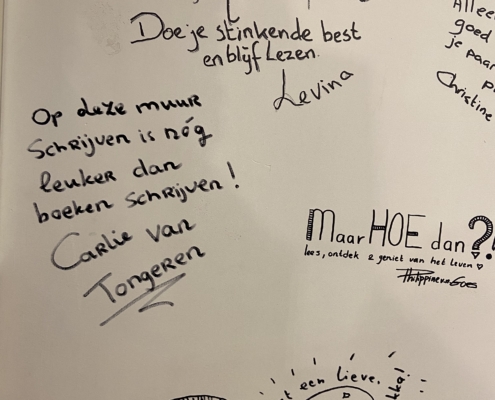 Doe je stinkende best
en blijf Lezen.
Levina
Allee
goed
je paar
p
Christine
Op deze muur
Schrijven is nóg
leuker dan
boeken schrijven!
Carlie van
Tongeren
Maar HOE dan?!
lees, ontdek & geniet van het leven ♡
t een lieve.
kka!